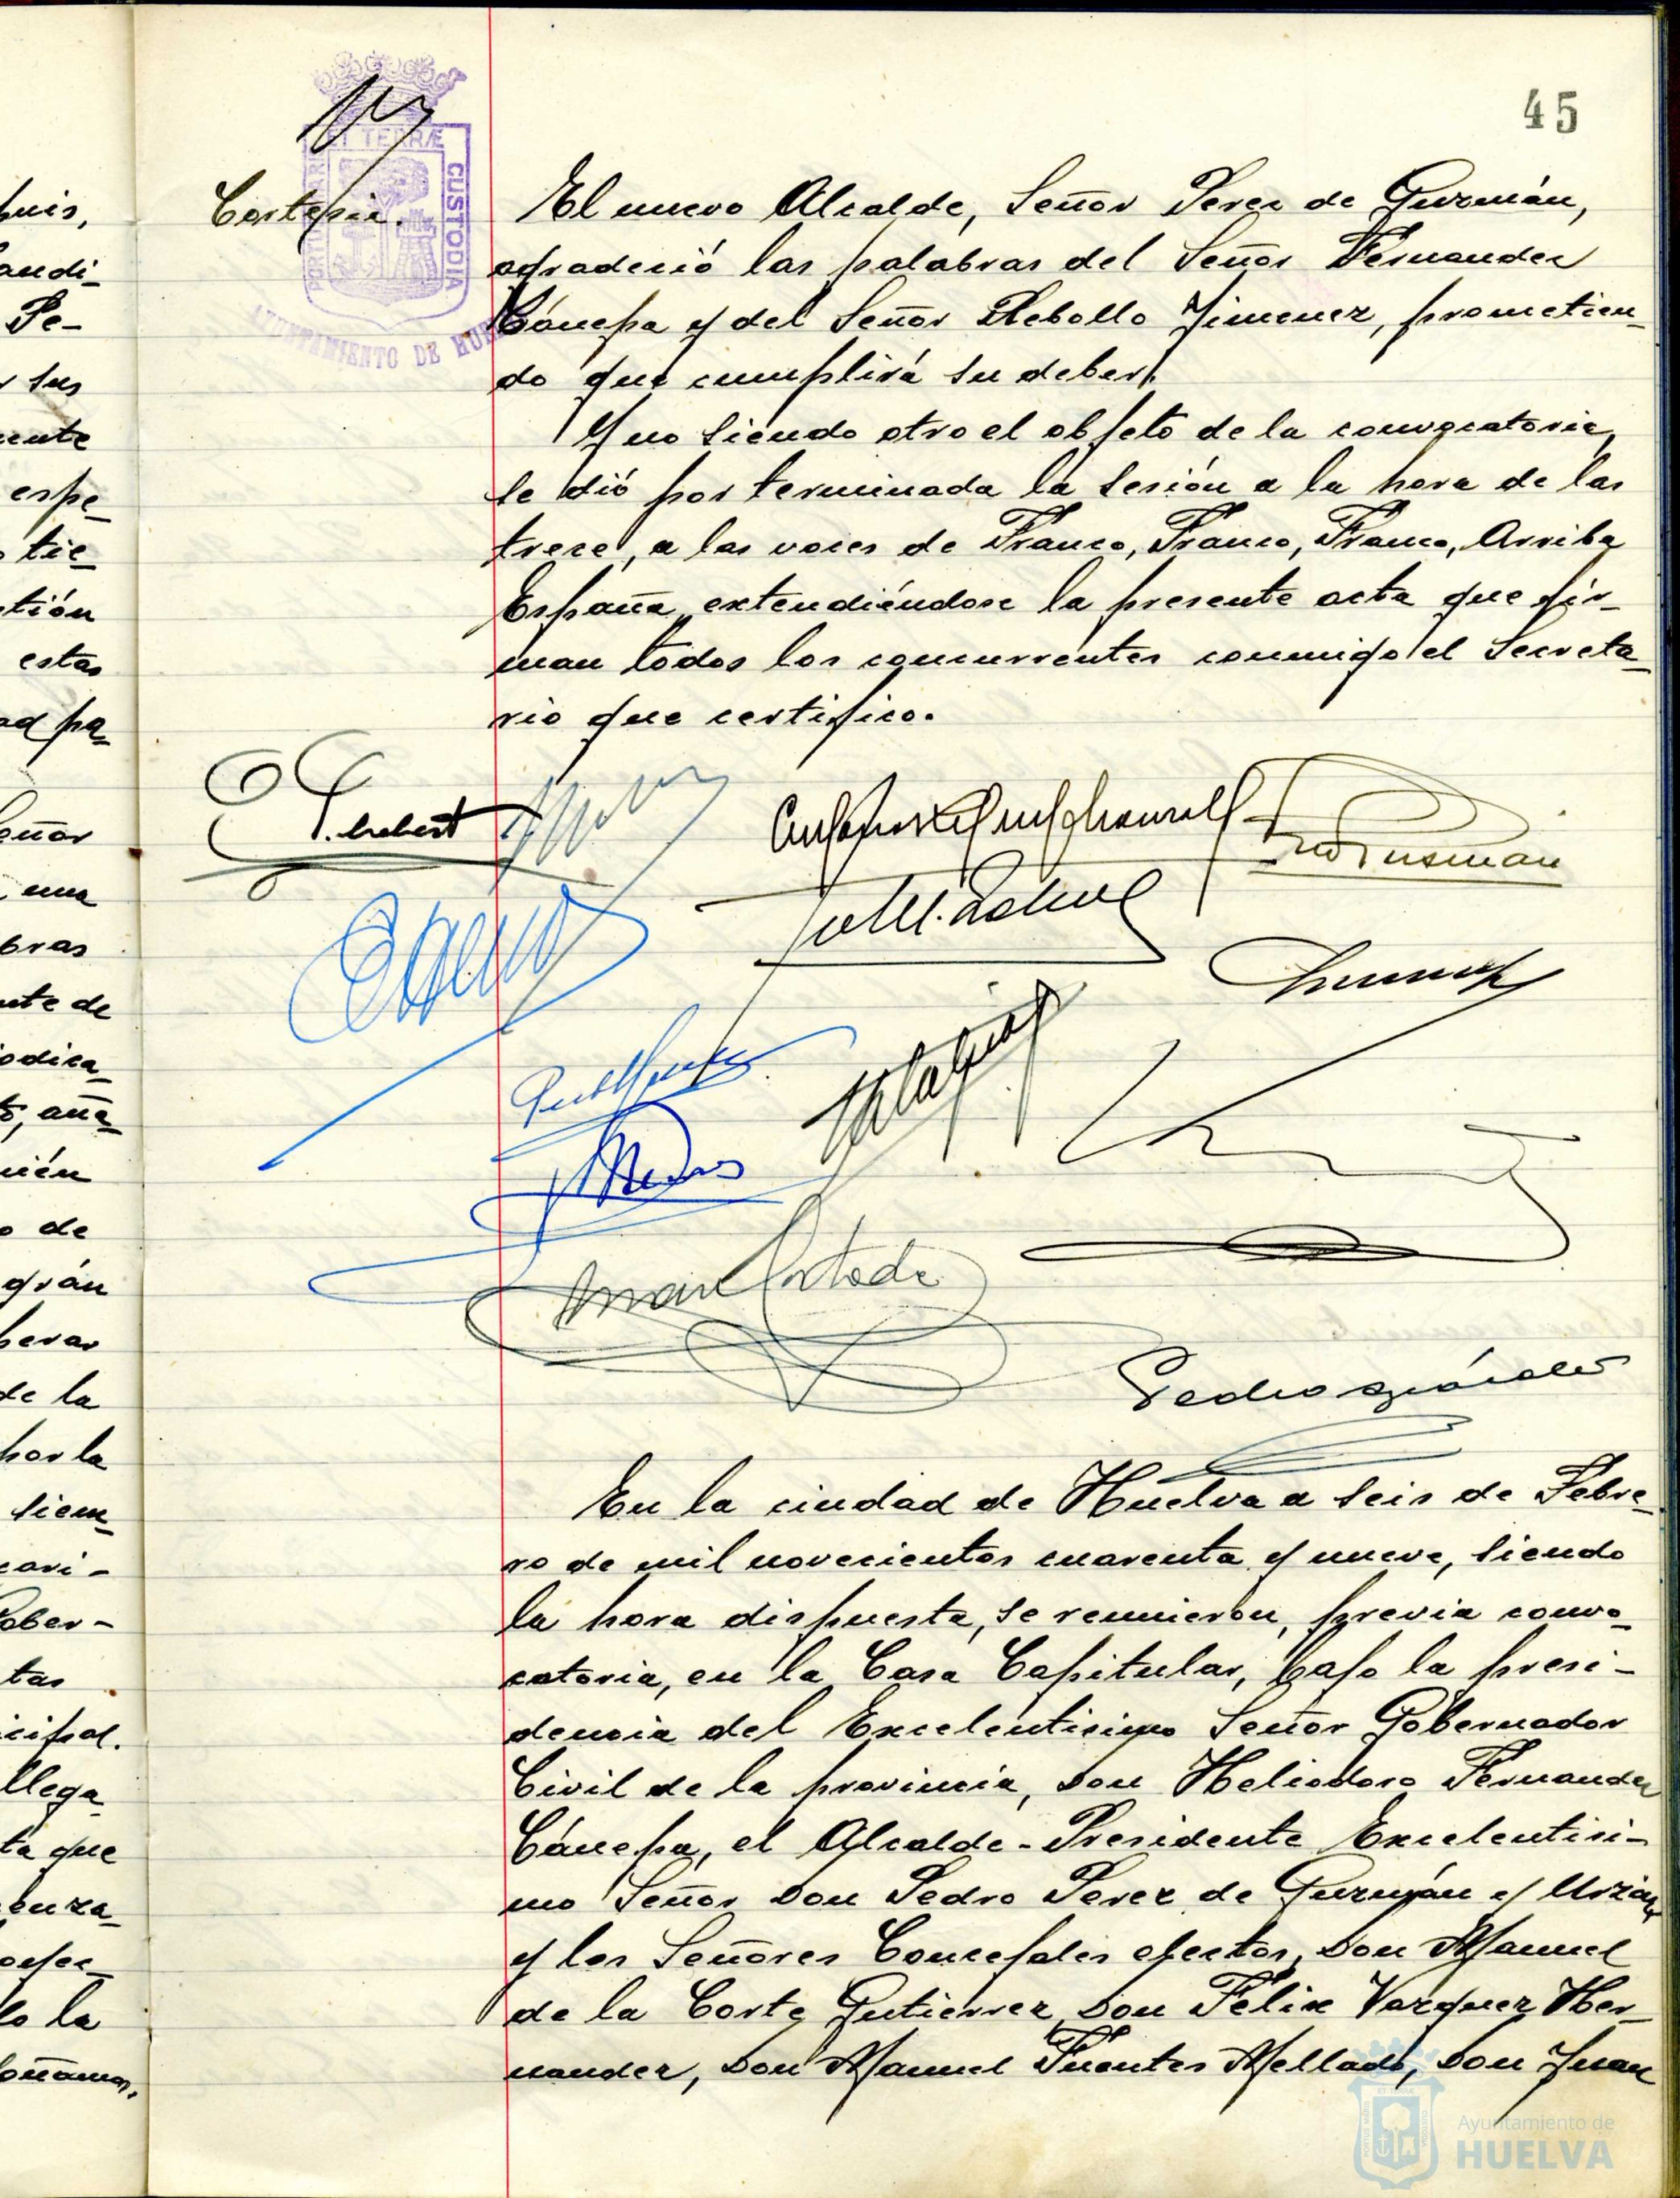 45
ET TERRÆ
CUSTODIA
AYUNTAMIENTO DE HUE
Cortesia.
El nuevo Alcalde, Señor Perez de Guzmán,
agradeció las palabras del Señor Fernandez
Cánepa y del Señor Rebollo Jimenez, prometien-
do que cumplirá su deber.
Y no siendo otro el objeto de la convocatoria,
se dió por terminada la sesión a la hora de las
trece, a las voces de Franco, Franco, Franco, Arriba
España, extendiéndose la presente acta que fir-
man todos los concurrentes conmigo el Secreta-
rio que certifico.
Pedro González
En la ciudad de Huelva a seis de Febre-
ro de mil novecientos cuarenta y nueve, siendo
la hora dispuesta, se reunieron, previa convo-
catoria, en la Casa Capitular, bajo la presi-
dencia del Excelentisimo Señor Gobernador
Civil de la provincia, Don Heliodoro Fernandez
Cánepa, el Alcalde-Presidente Excelentisi-
mo Señor Don Pedro Perez de Guzmán y Urzaiz
y los Señores Concejales electos, Don Manuel
de la Corte Gutierrez, Don Felix Vazquez Her-
nandez, Don Manuel Fuentes Mellado, Don Juan
huis,
andi-
Pe-
r sus
mente
espe-
tie-
tión
estas
ad pa-
eñor
una
bras
nte de
iodica-
aña-
uién
o de
grán
perar
de la
por la
siem-
cari-
Gober-
tas
icipal.
llega
ta que
enza-
lo la
Ayuntamiento de
HUELVA